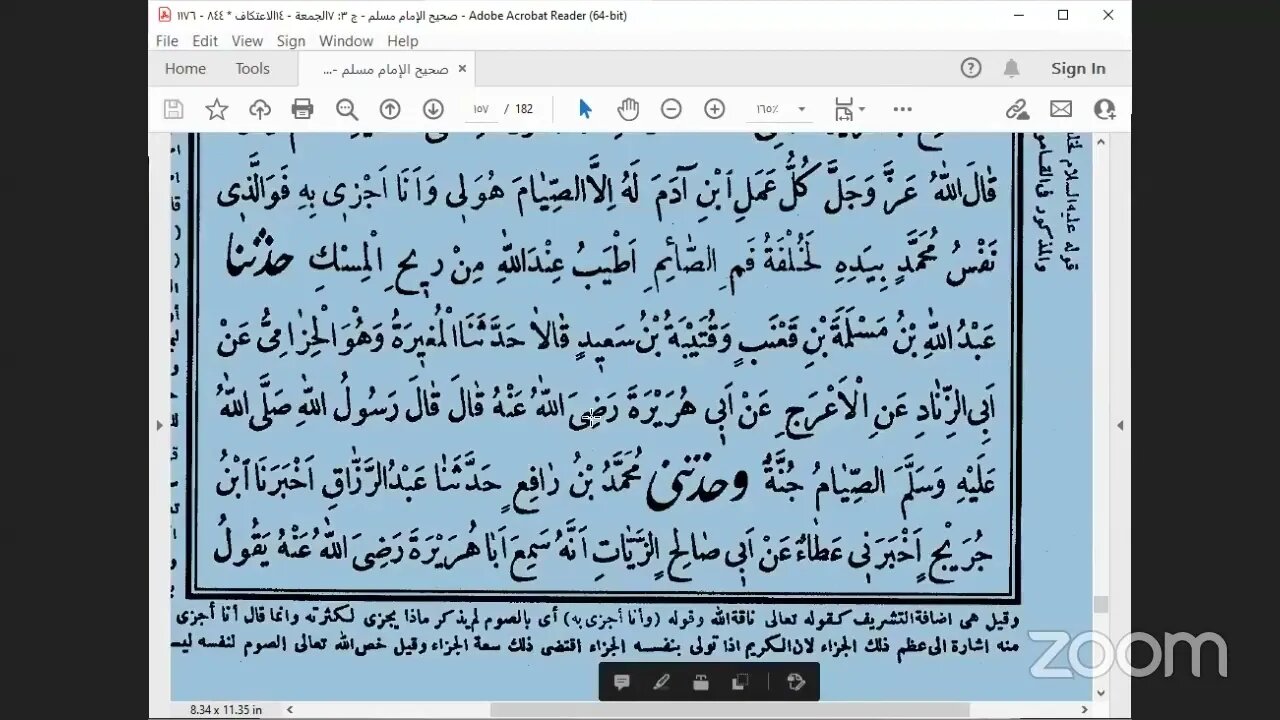 صحيح الإمام مسلم - ج ٣: ٧الجمعة - ١٤الاعتكاف * ٨٤٤ - ١١٧٦ - Adobe Acrobat Reader (64-bit)
File Edit View Sign Window Help
Home Tools صحيح الإمام مسلم -... × Sign In
١٥٧ / 182 ١٦٥٪
قَالَ اللهُ عَزَّ وَجَلَّ كُلُّ عَمَلِ ابْنِ آدَمَ لَهُ اِلاَّ الصِّيَامَ هُوَ لِي وَاَنَا اَجْزِى بِهِ فَوَالَّذِى
نَفْسُ مُحَمَّدٍ بِيَدِهِ لَخُلْفَةُ فَمِ الصَّائِمِ اَطْيَبُ عِنْدَ اللهِ مِنْ رِيحِ الْمِسْكِ حدثنا
عَبْدُ اللهِ بْنُ مَسْلَمَةَ بْنِ قَعْنَبٍ وَقُتَيْبَةُ بْنُ سَعِيدٍ قَالاَ حَدَّثَنَا الْمُغِيرَةُ وَهُوَ الْحِزَامِىُّ عَنْ
اَبِى الزِّنَادِ عَنِ الْاَعْرَجِ عَنْ اَبِي هُرَيْرَةَ رَضِىَ اللهُ عَنْهُ قَالَ قَالَ رَسُولُ اللهِ صَلَّى اللهُ
عَلَيْهِ وَسَلَّمَ الصِّيَامُ جُنَّةٌ وحدثنى مُحَمَّدُ بْنُ رَافِعٍ حَدَّثَنَا عَبْدُ الرَّزَّاقِ اَخْبَرَنَا ابْنُ
جُرَيْجٍ اَخْبَرَنِي عَطَاءٌ عَنْ اَبِي صَالِحٍ الزَّيَّاتِ اَنَّهُ سَمِعَ اَبَا هُرَيْرَةَ رَضِىَ اللهُ عَنْهُ يَقُولُ
وقيل هى اضافة التشريف كقوله تعالى ناقة الله وقوله (وأنا أجزى به) أى بالصوم لم يذكر ماذا يجزى لكثرته وانما قال أنا أجزى
منه اشارة الى عظم ذلك الجزاء لان الكريم اذا تولى بنفسه الجزاء اقتضى ذلك سعة الجزاء وقيل خص الله تعالى الصوم لنفسه ليس
قوله عليه السلام
والمذكور فى القاموس
8.34 x 11.35 in
zoom